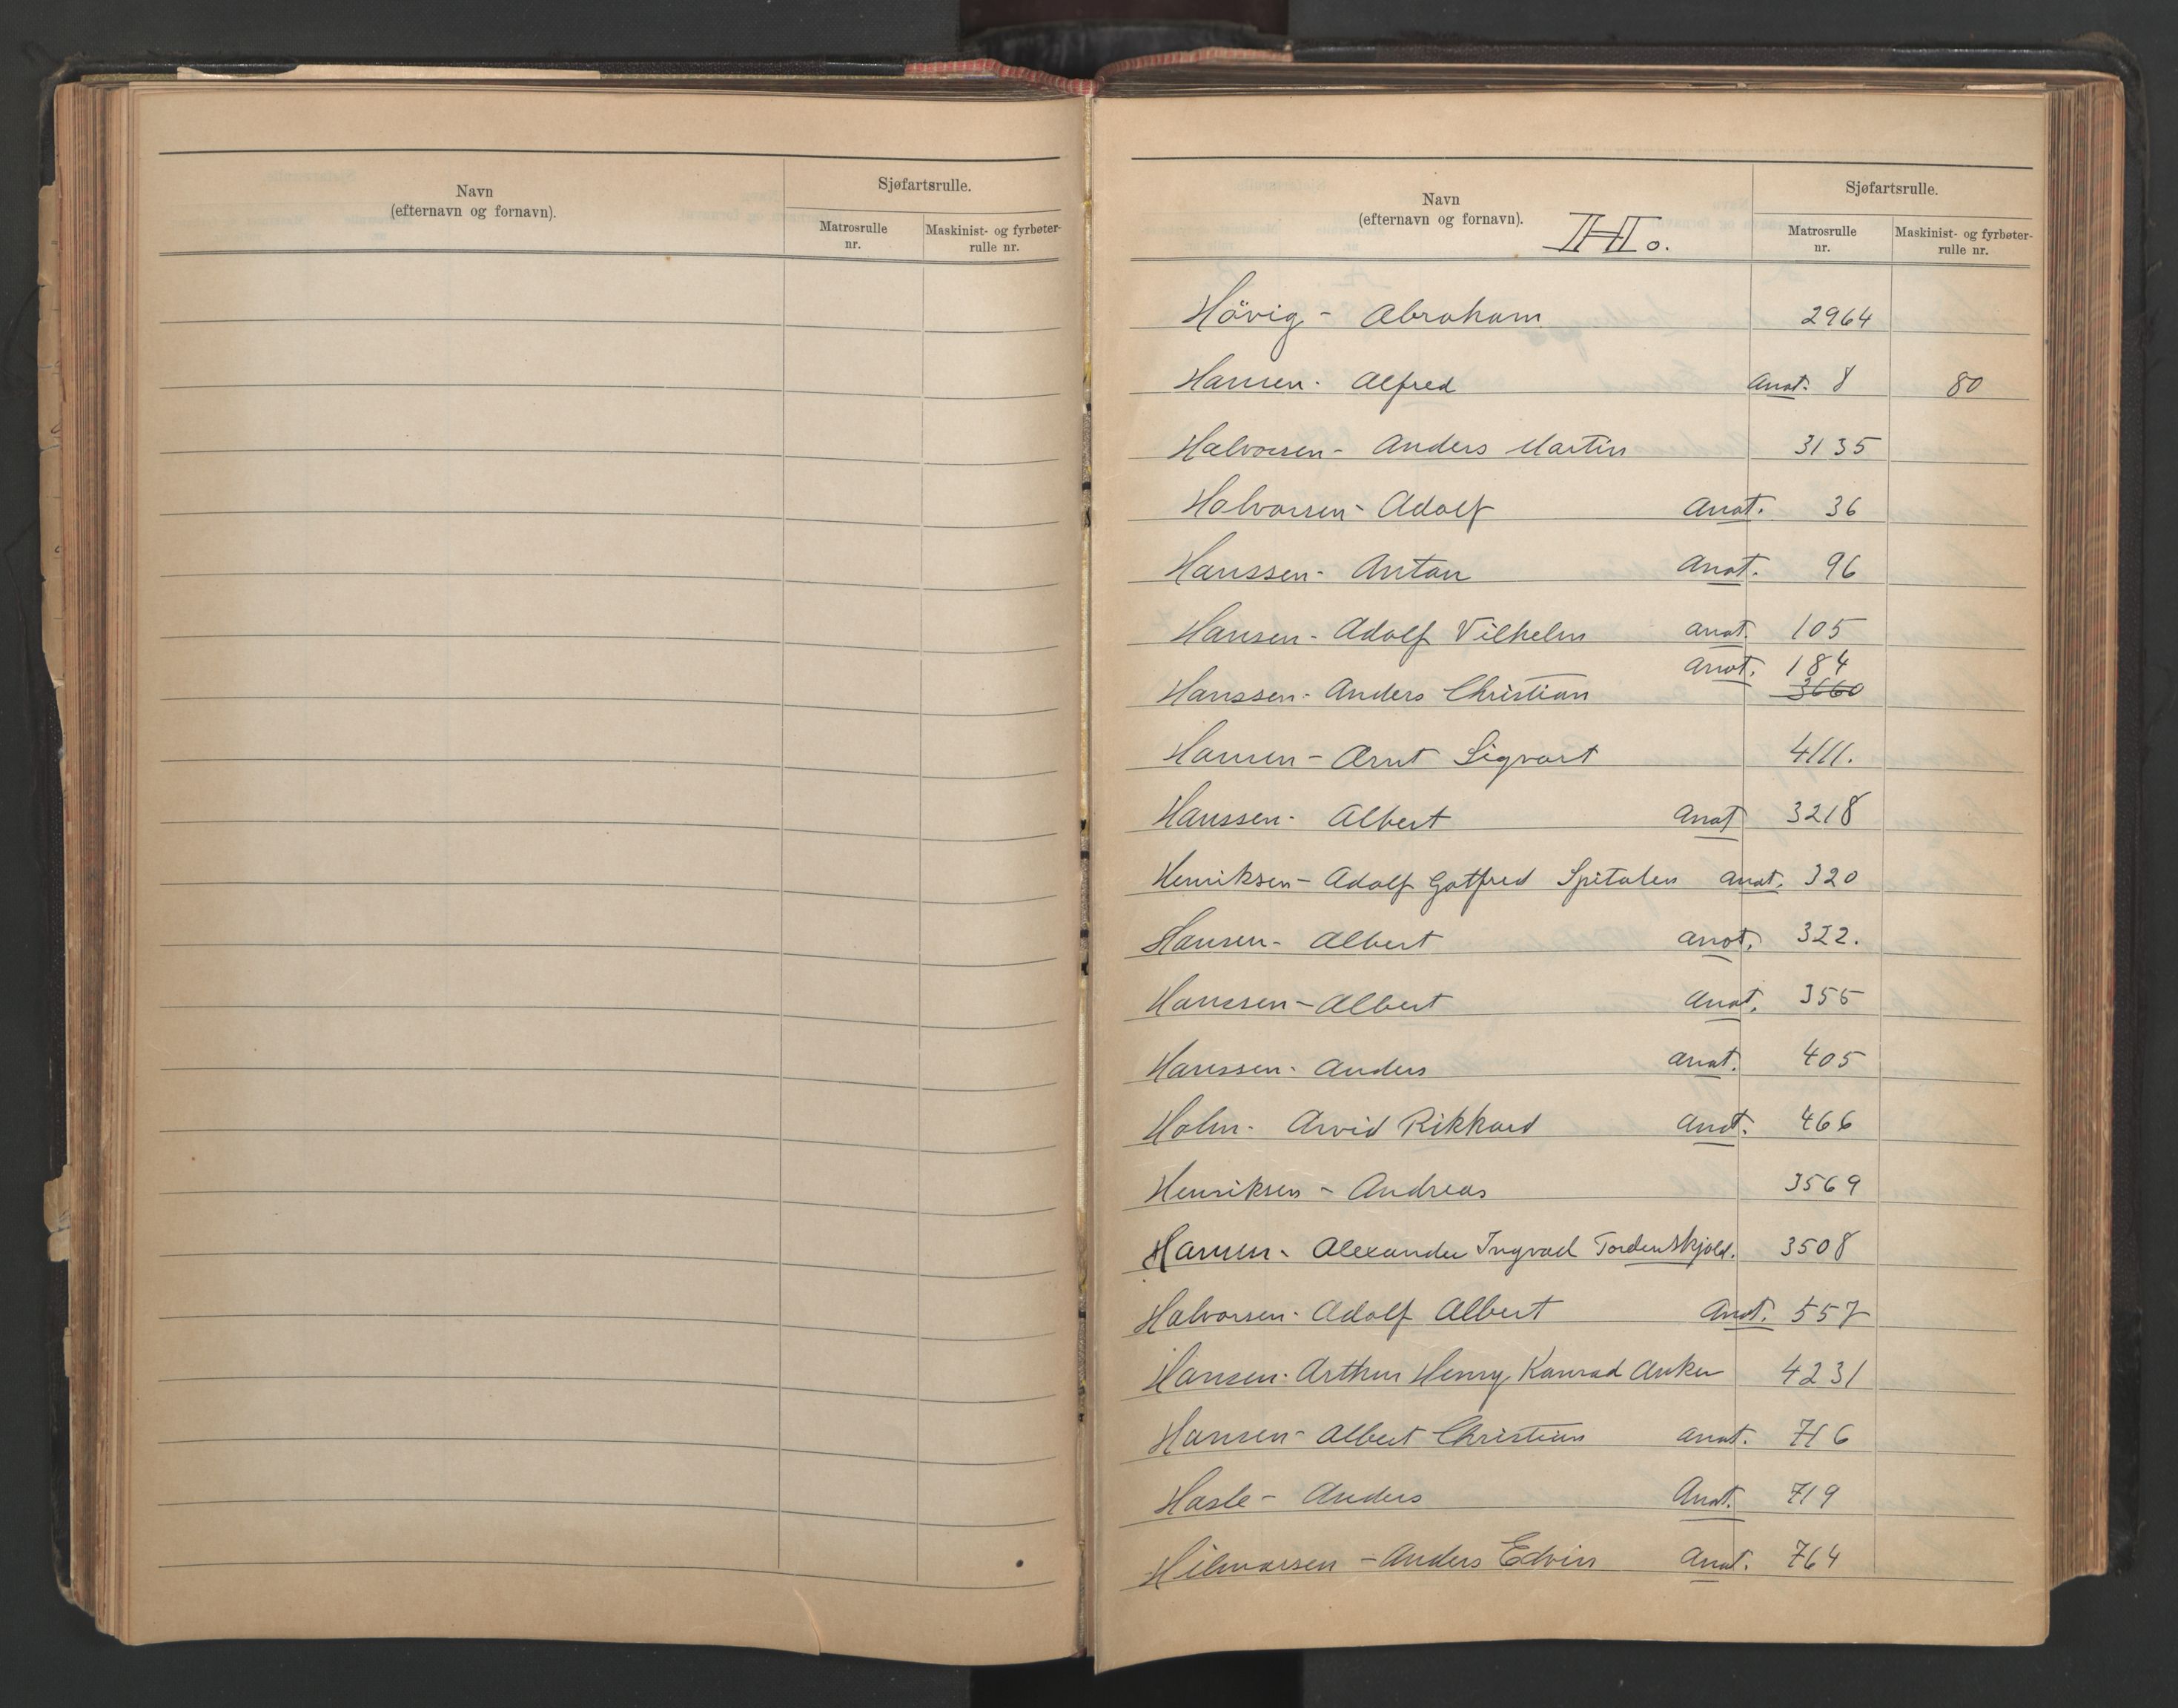 Navn
(efternavn og fornavn).
Sjøfartsrulle.
Matrosrulle
nr.
Maskinist- og fyrbøter-
rulle nr.
Navn
(efternavn og fornavn).
H o.
Sjøfartsrulle.
Matrosrulle
nr.
Maskinist- og fyrbøter-
rulle nr.
Hövig - Abraham 2964
Hansen - Alfred Anot. 8 80
Halvorsen - Anders Martin 3135
Halvorsen - Adolf Anot. 36
Hanssen - Anton Anot. 96
Hansen - Adolf Vilhelm anot. 105
Anot. 184
Hanssen - Anders Christian 3660
Hansen - Arnt Sigvart 4111.
Hanssen - Albert Anot 3218
Henriksen - Adolf Gotfred Spitalen anot. 320
Hansen - Albert anot. 322.
Hanssen - Albert Anot. 355
Hanssen - Anders anot. 405
Holm - Arvid Rikkard Anot. 466
Henriksen - Andreas 3569
Hansen - Alexander Ingvad Tordenskjold. 3508
Halvorsen - Adolf Albert Anot. 557
Hansen - Arthur Henry Konrad Anker 4231
Hansen - Albert Christian anot. 716
Hasle - Anders Anot. 719
Hilmarsen - Anders Edvin Anot. 764